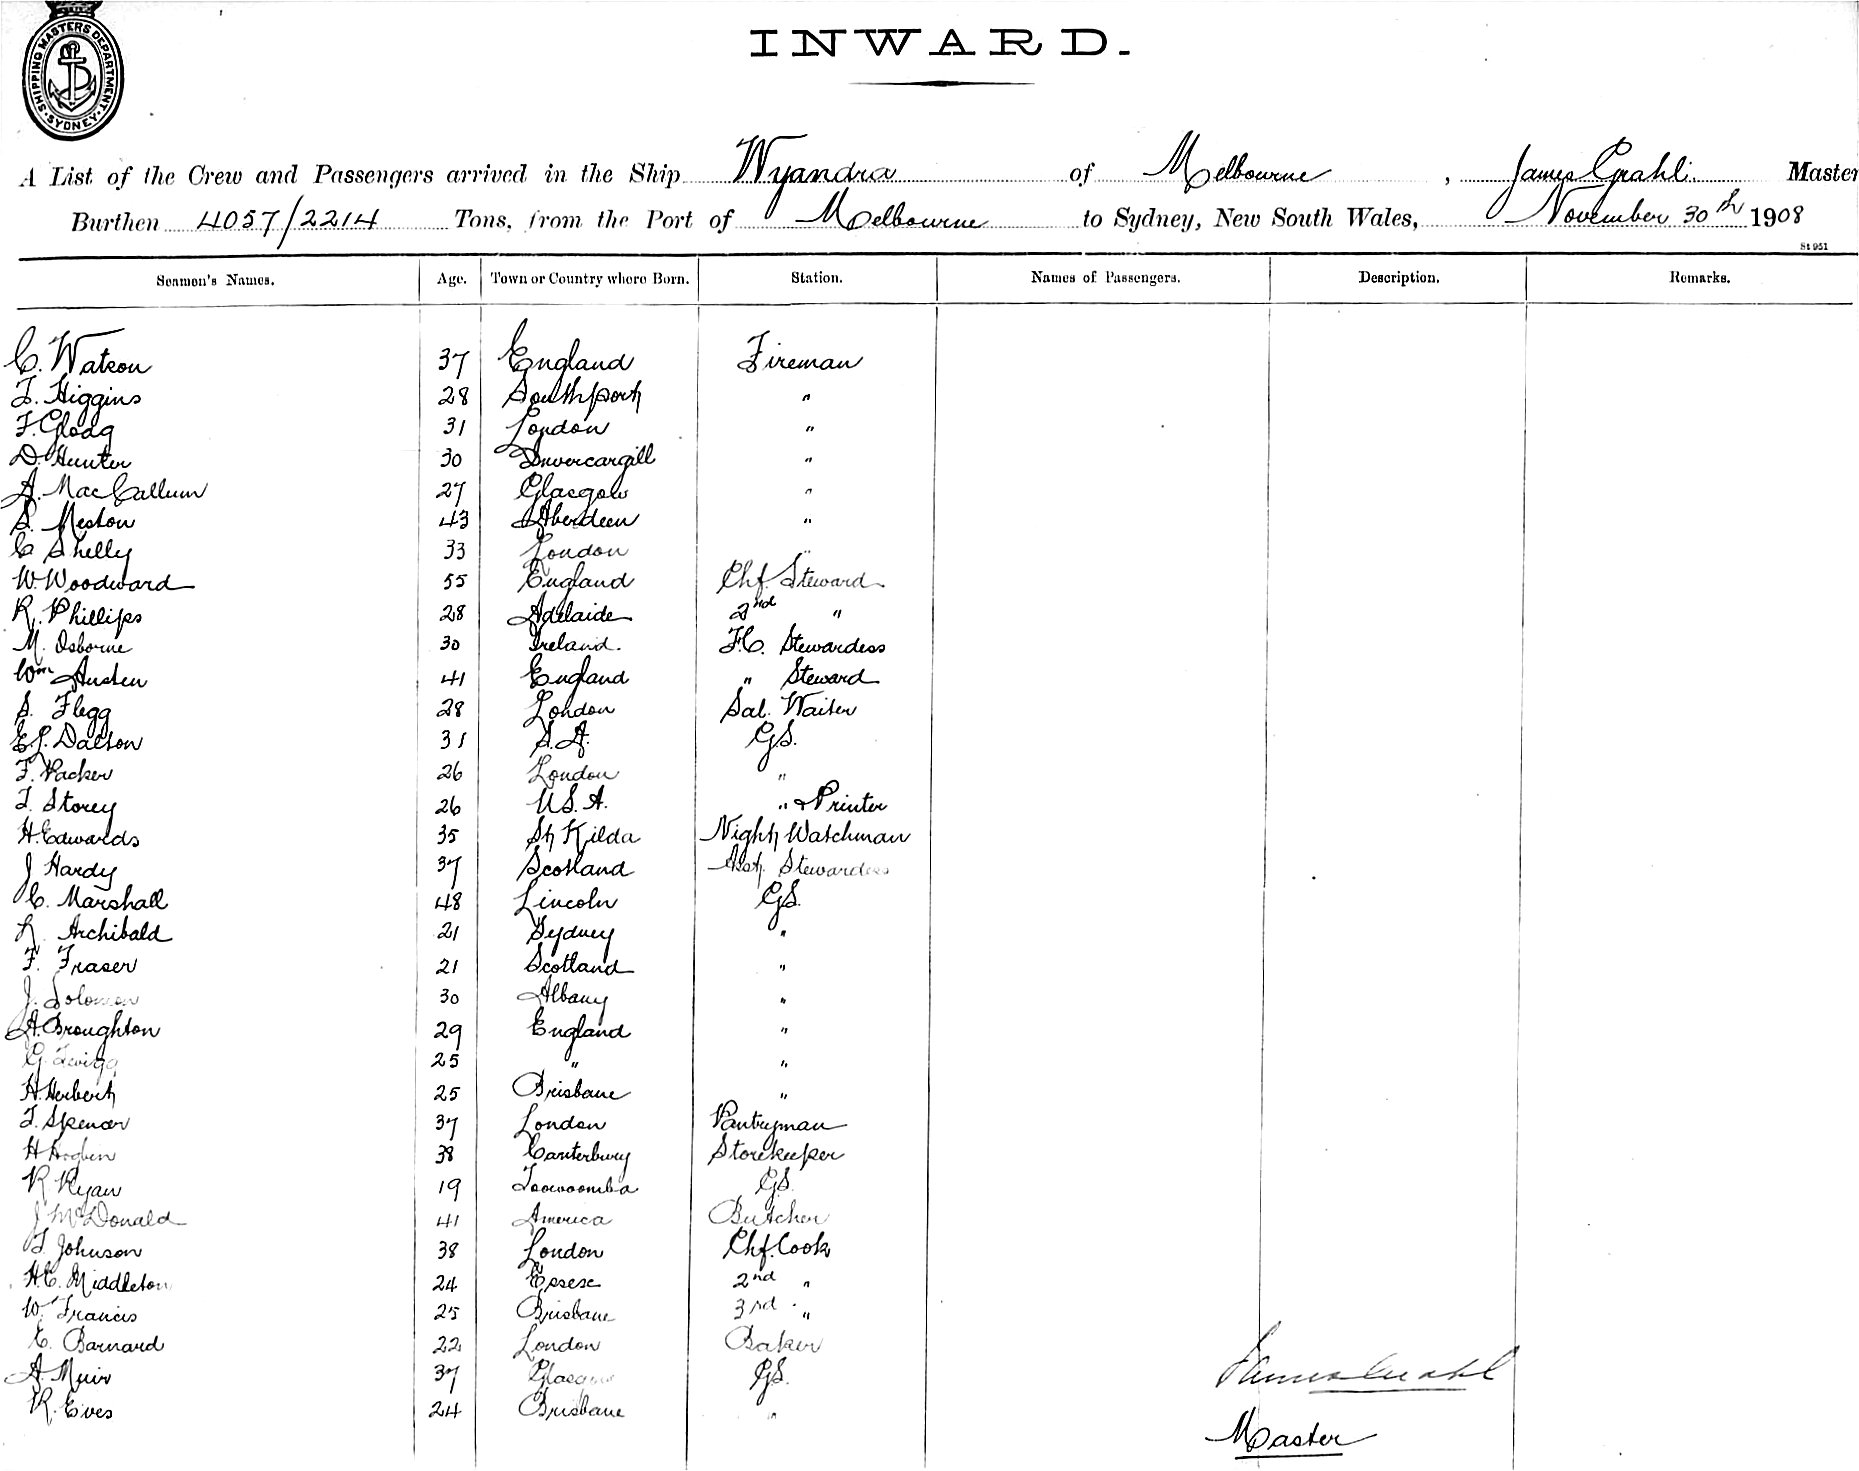 SHIPPING MASTERS DEPARTMENT
SYDNEY
INWARD.
A List of the Crew and Passengers arrived in the Ship Wyandra of Melbourne, James Grahl. Master
Burthen 4057/2214 Tons, from the Port of Melbourne to Sydney, New South Wales, November 30th 1908
St 951
Seamen's Names. Age. Town or Country where Born. Station. Names of Passengers. Description. Remarks.
C. Watson 37 England Fireman
T. Higgins 28 Southport "
F. Gloag 31 London "
D. Hunter 30 Invercargill "
A. MacCallum 27 Glasgow "
S. Meston 43 Aberdeen "
C Shelly 33 London "
W. Woodward 55 England Chf. Steward
R. Phillips 28 Adelaide 2nd "
M. Osborne 30 Ireland. F.C. Stewardess
Wm Austen 41 England " Steward
S. Flegg 28 London Sal. Waiter
E.J. Dalton 31 S.A. G.S.
F. Packer 26 London "
T. Storey 26 U.S.A. " & Printer
H. Edwards 35 St Kilda Night Watchman
J Hardy 37 Scotland Asst. Stewardess
C. Marshall 48 Lincoln G.S.
R. Archibald 21 Sydney "
F. Fraser 21 Scotland "
J. Solomon 30 Albany "
A. Broughton 29 England "
G. Twigg 25 " "
H. Herbert 25 Brisbane "
T. Spencer 37 London Pantryman
H Hogben 38 Canterbury Storekeeper
R Ryan 19 Toowoomba G.S.
J McDonald 41 America Butcher
T. Johnson 38 London Chf. Cook
H.C. Middleton 24 Essex 2nd "
W. Francis 25 Brisbane 3rd "
E. Barnard 22 London Baker
A. Muir 37 Glasgow G.S.
R. Eves 24 Brisbane "
James Grahl
Master